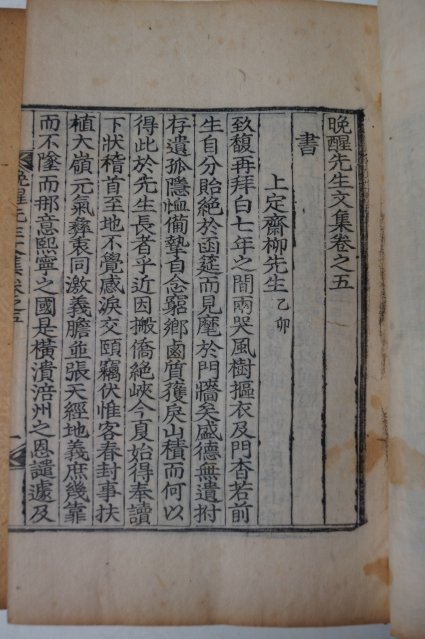 晩醒先生文集卷之五
書
上定齋柳先生 乙卯
致馥再拜白七年之間兩哭風樹摳衣及門杳若前
生自分貽絶於函筵而見麾於門牆矣盛德無遺拊
存遺孤隱恤備摯自念窮鄉鹵質獲戾山積而何以
得此於先生長者乎近因搬僑絶峽今夏始得奉讀
下狀稽首至地不覺感淚交頤竊伏惟客春封事扶
植大嶺元氣彛秉同激義膽並張天經地義庶幾靠
而不墜而那意熙寧之國是橫潰涪州之恩譴遽及
晩醒先生文集卷之五
一